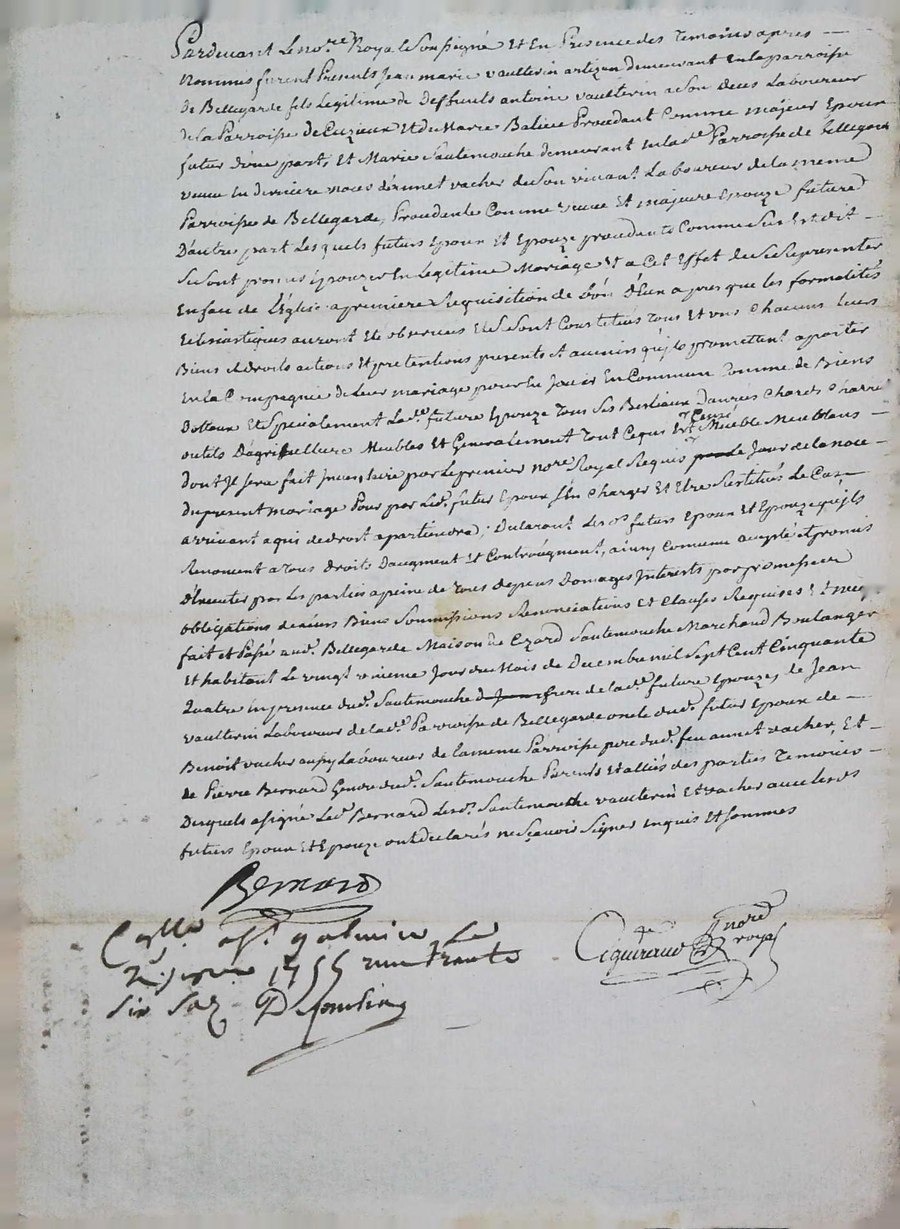 Pardevant Le no.re Royal Soussigné Et En Presence des Temoins apres —
Nommes furent Presents Jean marie vaulterin artizan demeurant en la parroisse
de Bellegarde fils Legitime de Deffunts antoine vaulterin a Son deces Laboureur
de la Parroisse de Cuzieux Et de Marie Baliere Procedant Comme majeur Epoux
futur d'une part, Et Marie Sautemouche demeurant en lad.e Parroisse de bellegarde
veuve en derniere noces d'annet vacher de Son vivant Laboureur de la meme
Parroisse de Bellegarde, Procedante Comme veuve Et majeure Epouze future
D'autre part Les quels futurs Epoux Et Epouze procedants Comme Sus Est dit —
Se Sont promis épouzer En Legitime Mariage Et a Cet Effet de Se Representer
En face de L'Eglise a premiere Requisition de L'un D'Eux apres que les formalités
Eclesiastiques auront Ete observées Et Se Sont Constitués Tous Et uns Chacuns Leurs
Biens et droits actions Et pretentions presents et avenirs qu'ils promettent aporter
En La Compagnie de Leur mariage pour En Jouir En Commun Comme de Biens
Dottaux Et Specialement Lad.e future Epouze Tous Ses Bestiaux Danrées Chards Charrue
outils D'agriculture Meubles Et Generalement Tout Ce qui Est Censé Meuble Meublans —
Dont Il Sera fait Inventaire par Le premier no.re Royal Requis Le Jour de la noce —
du present mariage Pour par Led. futur Epoux S'En Charger Et Etre Restitués Le Cas
arrivant a qui de droit apartiendra; Declarant Les d.s futurs Epoux Et Epouze qu'ils
Renoncent a Tous droits D'augment Et Contr'augment, ainsy Convenu accepté et promis
D'Executer par Les parties a peine de Tous depens Domages Interests par promesses
obligations de leurs Biens Soumissions Renonciations Et Clauses Requises;
fait et Passé aud. Bellegarde Maison de Sautemouche Marchand Boulanger
Et habitant Le vingt Jour du Mois de Decembre mil Sept Cent Cinquante
Quatre in presence dud. Sautemouche frere de lad.e future Epouze, de Jean
vaulterin Laboureur de lad.e Parroisse de Bellegarde oncle dud. futur Epoux de —
Benoit vacher aussy Laboureur de la meme Parroisse pere dud. feu annet vacher, Et —
de Pierre Bernard Gendre dud. Sautemouche Parents Et alliés des parties Temoins —
Desquels a signé Led. Bernard Les d. Sautemouche vaulterin Et vacher avec les d.s
futurs Epoux Et Epouze ont declarés ne Sçavoir Signer enquis Et Sommés
Bernard
galmier Le
1755 trente
Six Sols
no.re royal